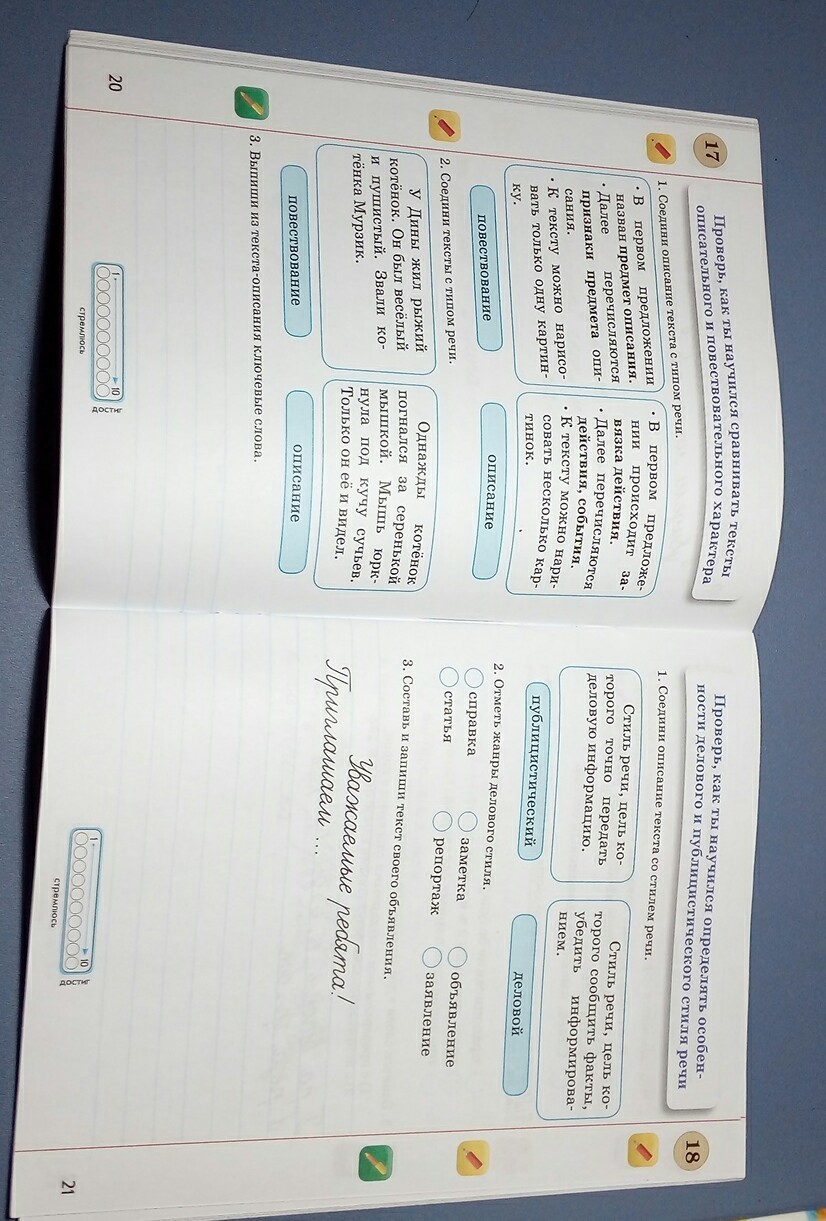 17
Проверь, как ты научился сравнивать тексты
описательного и повествовательного характера
1. Соедини описание текста с типом речи.
• В первом предложении
назван предмет описания.
• Далее перечисляются
признаки предмета опи-
сания.
• К тексту можно нарисо-
вать только одну картин-
ку.
• В первом предложе-
нии происходит за-
вязка действия.
• Далее перечисляются
действия, события.
• К тексту можно нари-
совать несколько кар-
тинок.
повествование
описание
2. Соедини тексты с типом речи.
У Дины жил рыжий
котёнок. Он был весёлый
и пушистый. Звали ко-
тёнка Мурзик.
Однажды котёнок
погнался за серенькой
мышкой. Мышь юрк-
нула под кучу сучьев.
Только он её и видел.
повествование
описание
3. Выпиши из текста-описания ключевые слова.
1
10
стремлюсь
достиг
20
18
Проверь, как ты научился определять особен-
ности делового и публицистического стиля речи
1. Соедини описание текста со стилем речи.
Стиль речи, цель ко-
торого точно передать
деловую информацию.
Стиль речи, цель ко-
торого сообщить факты,
убедить информирова-
нием.
публицистический
деловой
2. Отметь жанры делового стиля.
справка
заметка
объявление
статья
репортаж
заявление
3. Составь и запиши текст своего объявления.
Уважаемые ребята!
Приглашаем ...
1
10
стремлюсь
достиг
21